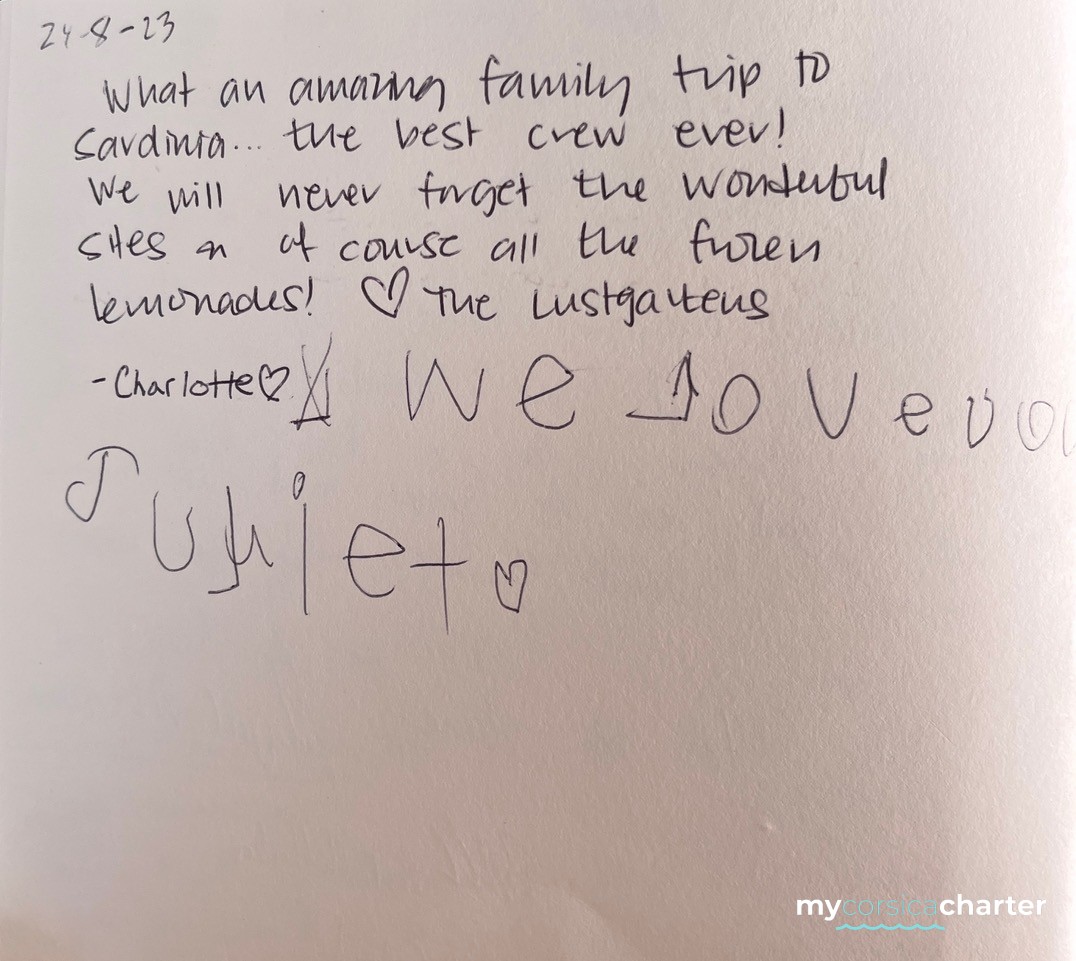 24-8-23
What an amazing family trip to
Sardinia... the best crew ever!
We will never forget the wonderful
sites of course all the frozen
lemonades! ♡ The Lustgartens
-Charlotte♡ We love you
Juliet ♡
mycorsicacharter